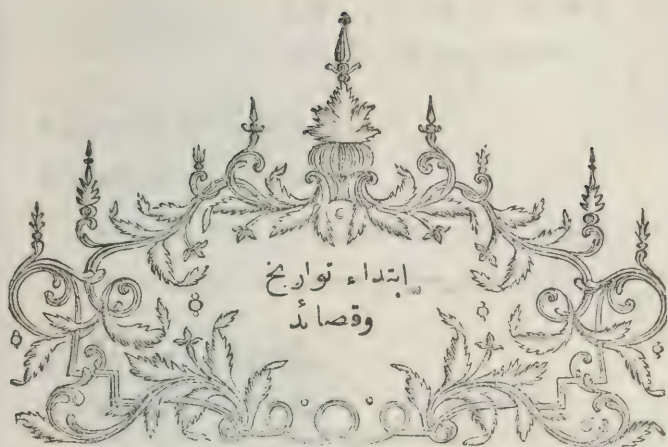 ابتداء تواريخ
وقصائد